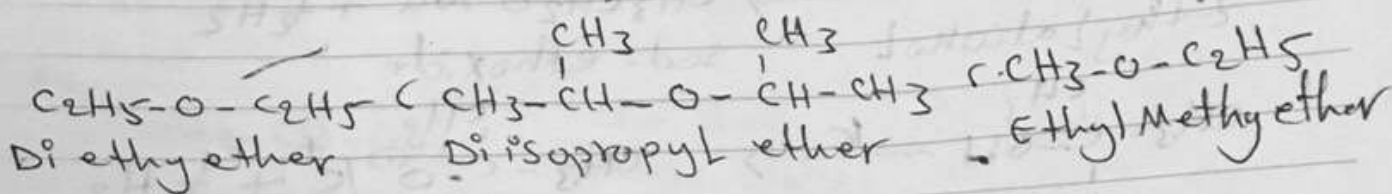 CH3 CH3
C2H5-O-C2H5 ( CH3-CH-O-CH-CH3 ( CH3-O-C2H5
Di ethy ether Diisopropyl ether . Ethyl Methy ether